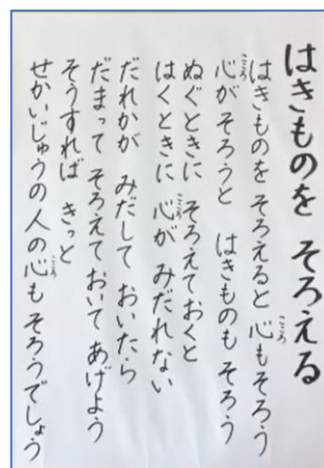 はきものを そろえる
はきものを そろえると 心もそろう
心がそろうと はきものも そろう
ぬぐときに そろえておくと
はくときに 心が みだれない
だれかが みだして おいたら
だまって そろえておいてあげよう
そうすれば きっと
せかいじゅうの人の心もそろうでしょう